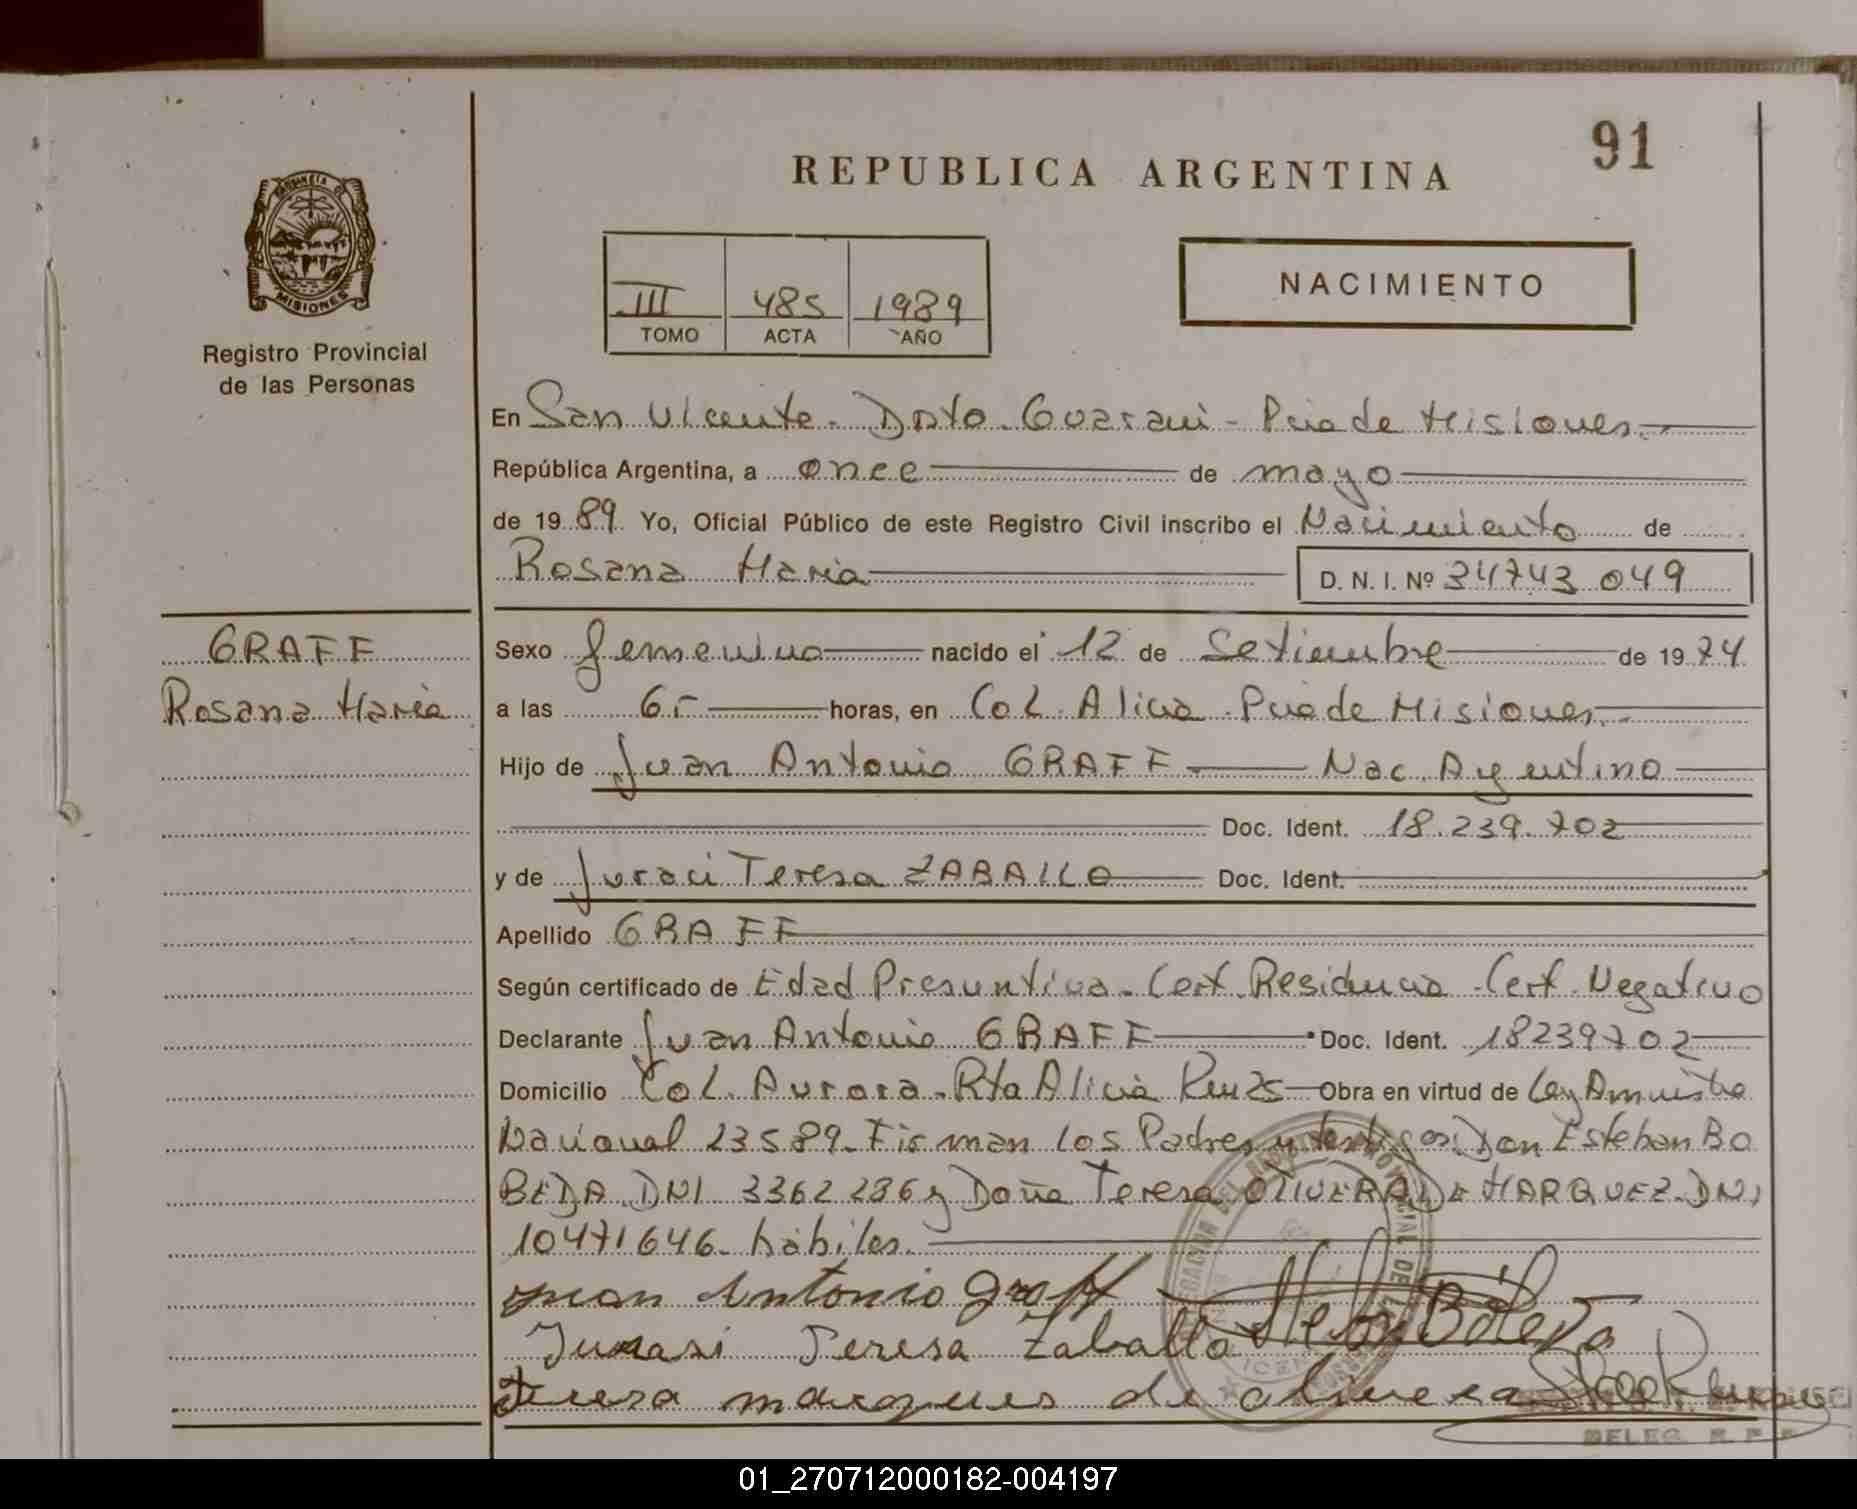 91
REPUBLICA ARGENTINA
MISIONES
Registro Provincial
de las Personas
III 485 1989
TOMO ACTA AÑO
NACIMIENTO
En San Vicente - Dpto. Guarani - Pcia de Misiones.
República Argentina, a once de mayo
de 1989 Yo, Oficial Público de este Registro Civil inscribo el Nacimiento de
Rosana Maria D. N. I. Nº 34743 049
GRAFF
Rosana Maria
Sexo femenino nacido el 12 de Setiembre de 1974
a las 6.- horas, en Col. Alicia Pcia de Misiones.-
Hijo de Juan Antonio GRAFF Nac. Argentino
Doc. Ident. 18.239.702
y de Juraci Teresa ZABALLO Doc. Ident.
Apellido GRAFF
Según certificado de Edad Presuntiva - Cert. Residencia - Cert. Negativo
Declarante Juan Antonio GRAFF Doc. Ident. 18239702
Domicilio Col. Aurora - Rta Alicia Obra en virtud de Ley Amnistia
Nacional 23589 - Firman los Padres y testigos: Don Esteban BO
BEDA DNI 3362286 y Doña Teresa OLIVERA DE MARQUEZ DNI
10471646 - habiles.
Juan Antonio Graff
Juraси Teresa Zaballo
Teresa marques de olivera
DELEG. R. P. P.
01_270712000182-004197